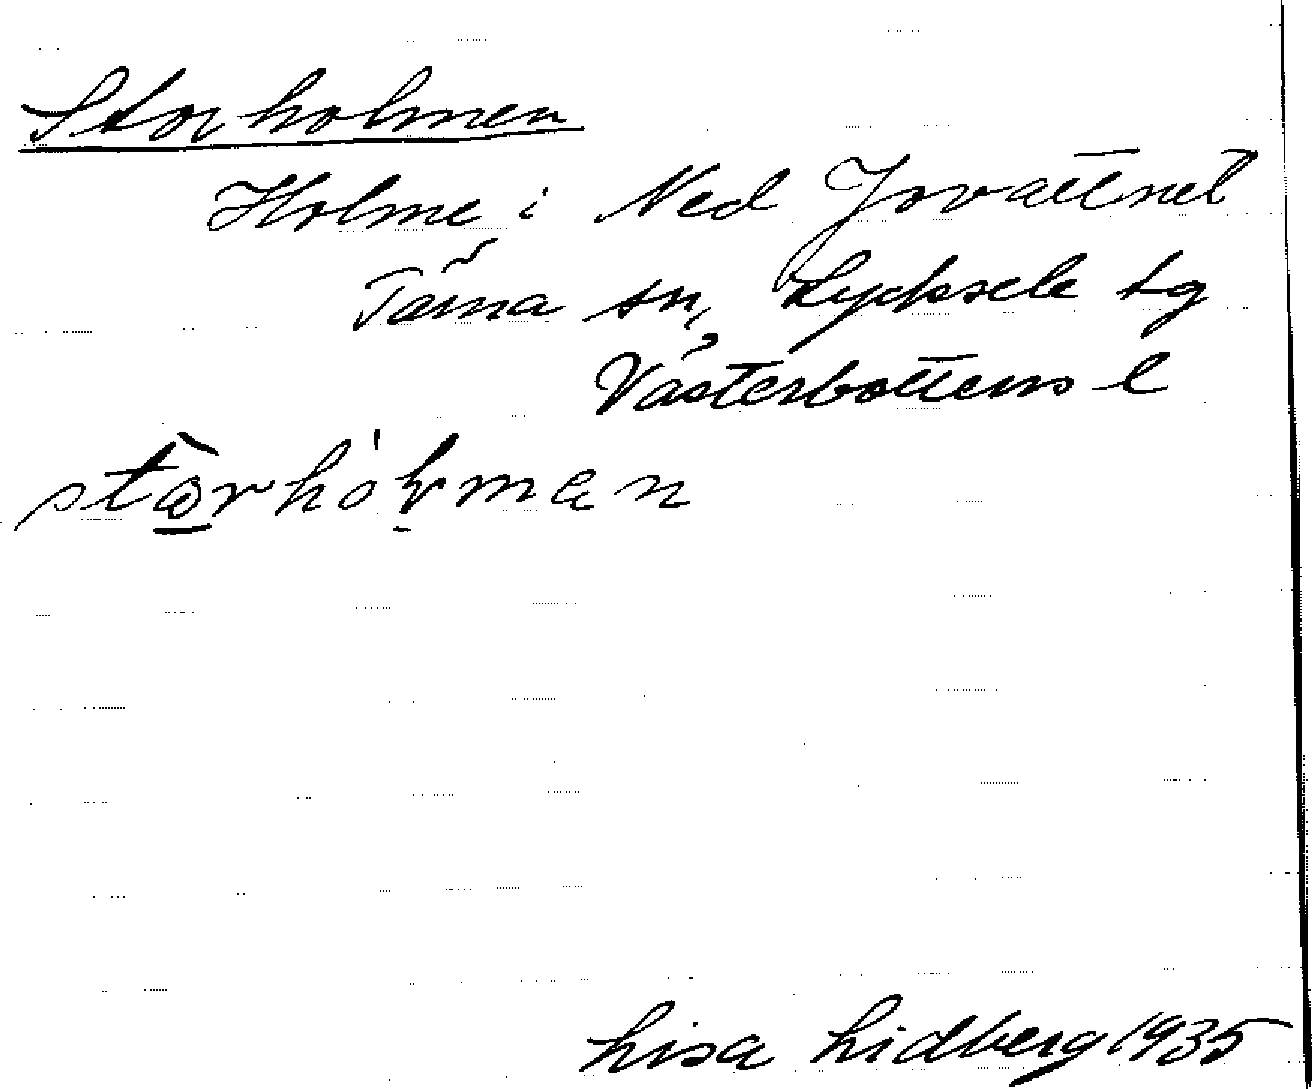 Storholmen
Holme i Ned Jovattnet
Tärna sn, Lycksele tg
Västerbottens l
Lisa Lidberg 1935